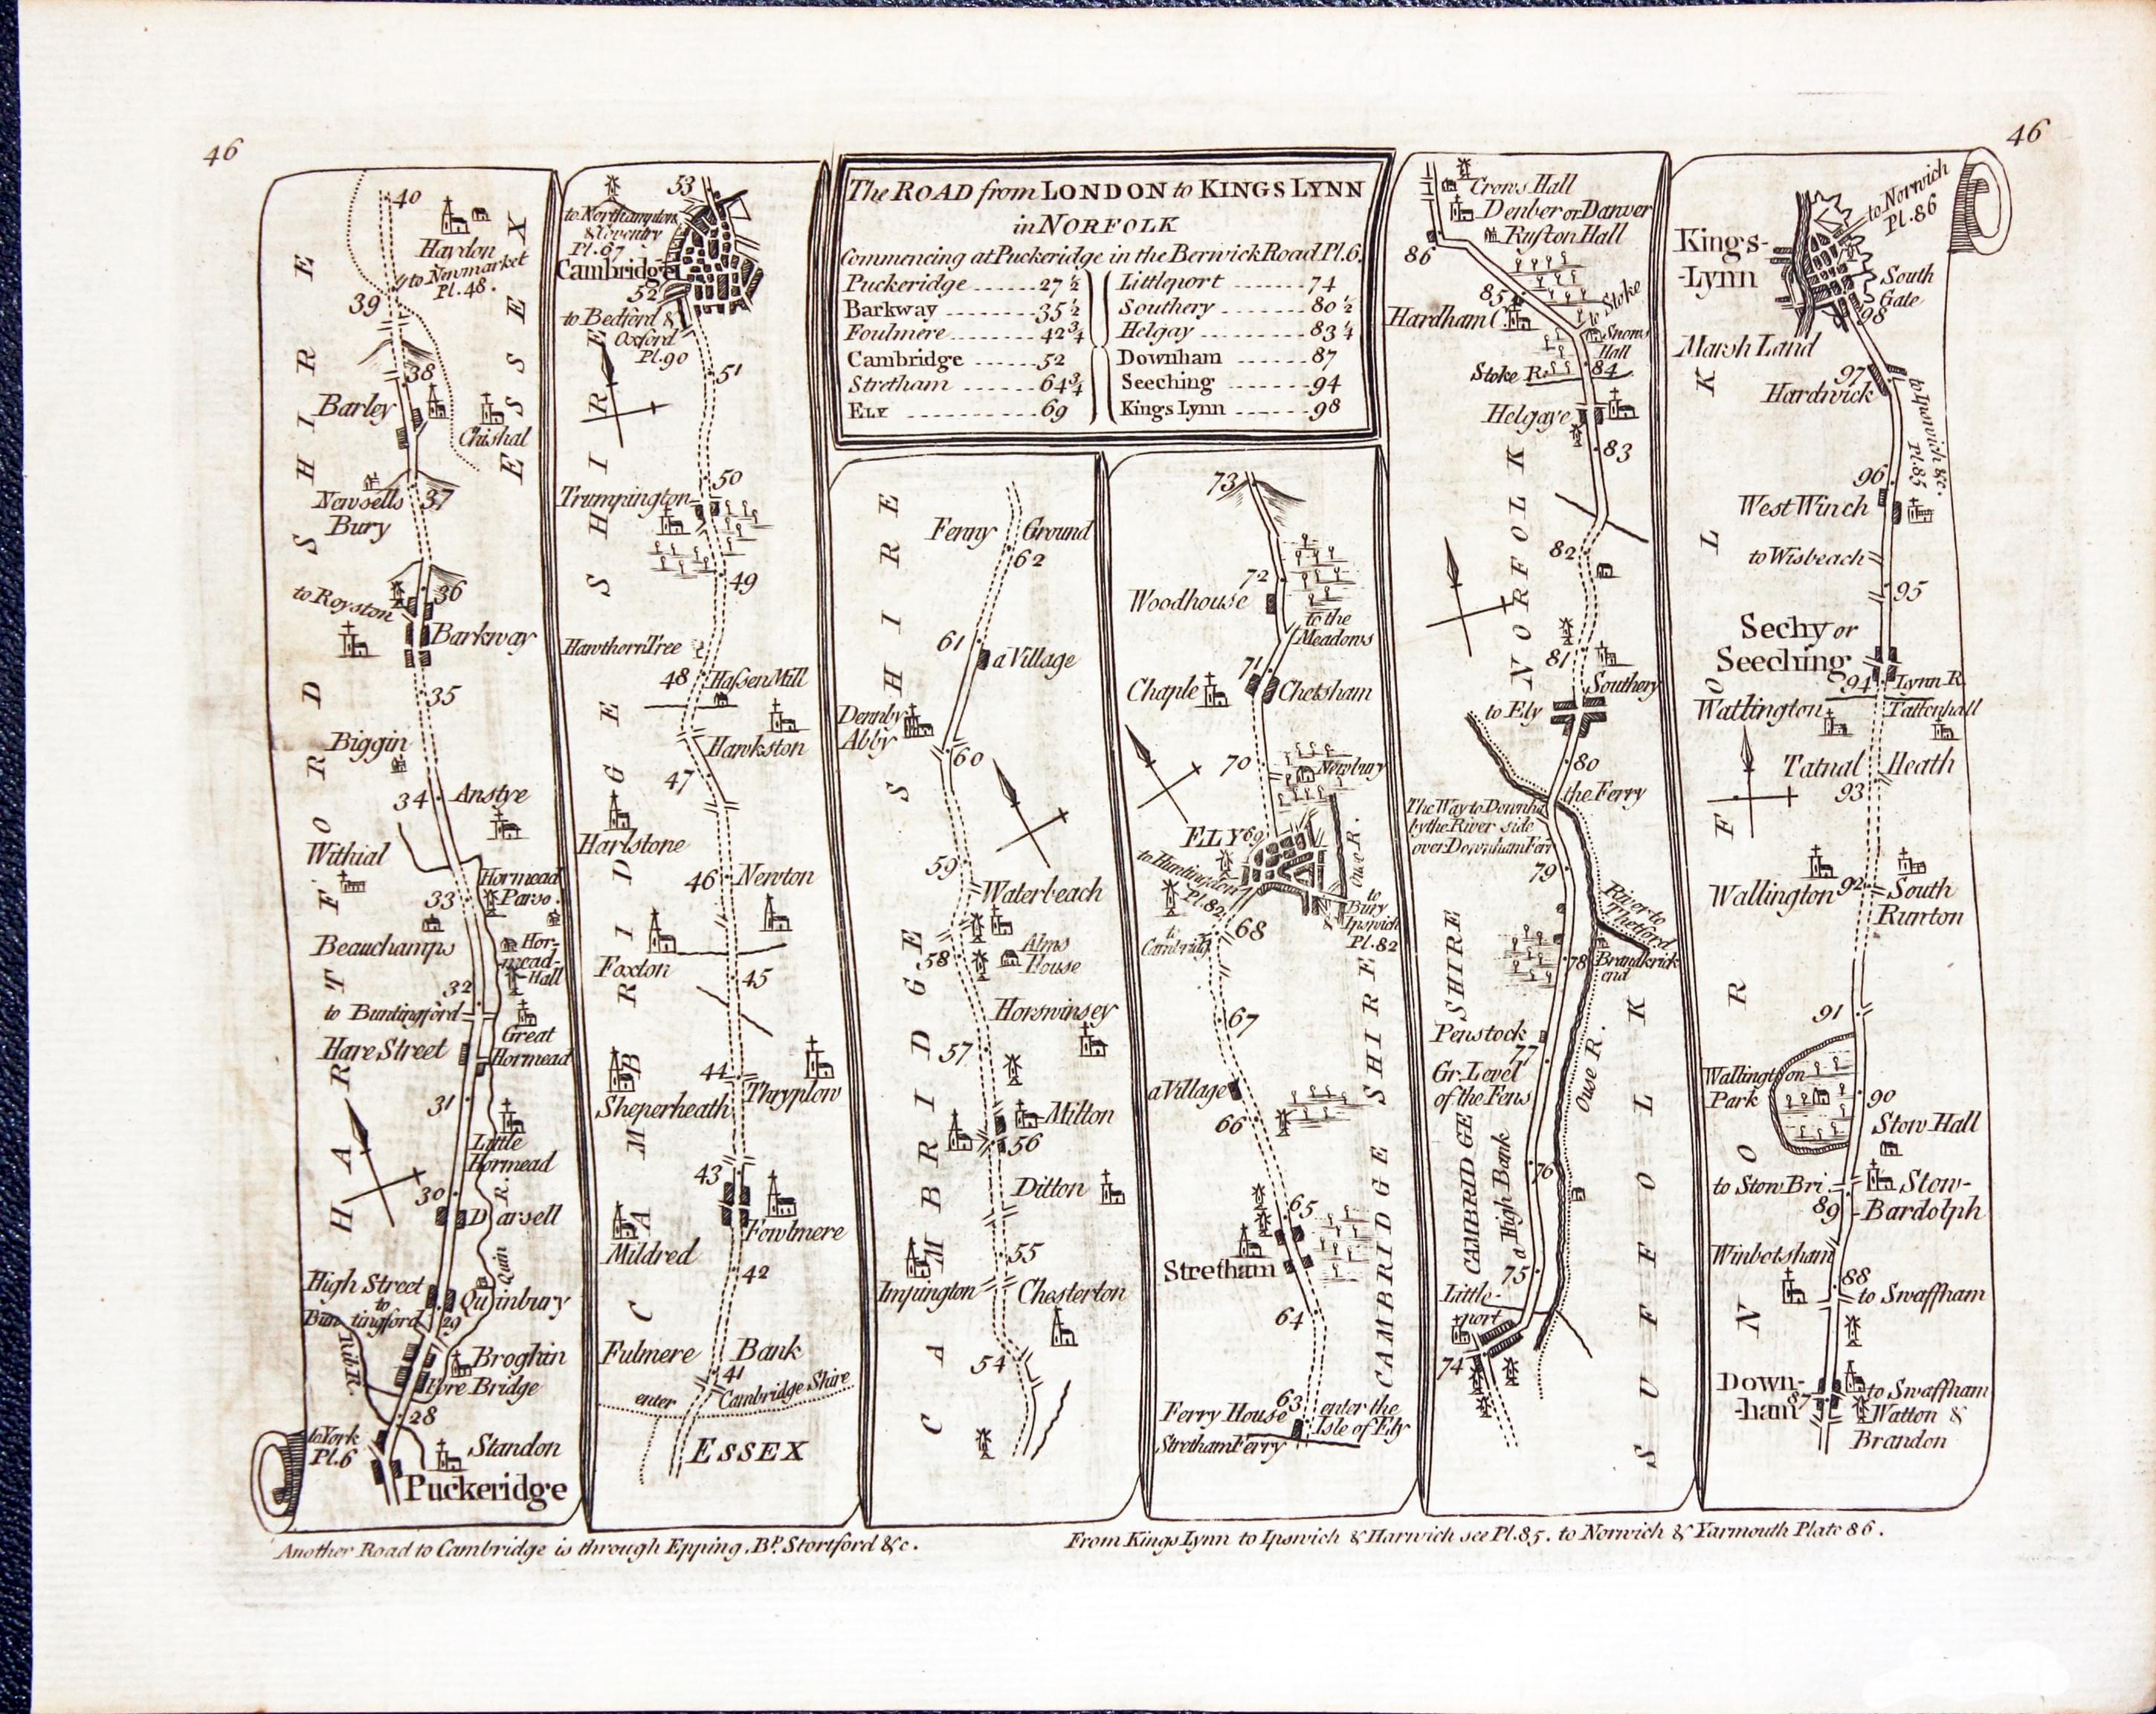 46
46
The ROAD from LONDON to KINGS LYNN
in NORFOLK
Commencing at Puckeridge in the Berwick Road Pl.6.
Puckeridge ...... 27 ½
Barkway ........ 35 ½
Foulmere ........ 42 ¾
Cambridge ...... 52
Stretham ...... 64 ¾
ELY ........... 69
Littleport ....... 74
Southery ....... 80 ½
Helgay .......... 83 ¼
Downham ...... 87
Seeching ....... 94
Kings Lynn ...... 98
40
Haydon
to Newmarket
Pl.48.
39
38
Barley
Chishal
Newsells
Bury
37
to Royston
36
Barkway
35
Biggin
34
Anstye
Withial
Hormead
Parso.
33
Beauchamps
Hor-
mead-
Hall
32
to Buntingford
Great
Hormead
Hare Street
31
Little
Hormead
30
Darsell
Quin
R.
High Street
Quinbury
to
Buntingford
29
Rib R.
Broghin
Fore Bridge
28
to York
Pl.6
Standon
Puckeridge
HARTFORDSHIRE
ESSEX
53
to Northampton
& Coventry
Pl.67
Cambridge
52
to Bedford &
Oxford
Pl.90
51
50
Trumpington
49
Hawthorn Tree
48
Hassen Mill
Hawkston
47
Harlstone
46
Newton
Foxton
45
44
Sheperheath
Thryplow
43
Fowlmere
Mildred
42
Fulmere Bank
41
enter Cambridge Shire
ESSEX
CAMBRIDGE SHIRE
Fenny Ground
62
61
a Village
Dennby
Abby
60
59
Waterbeach
58
Alms
House
Horswinsey
57
Milton
56
Ditton
55
Impington
Chesterton
54
CAMBRIDGE SHIRE
73
72
Woodhouse
to the
Meadows
71
Chaple
Chetsham
70
Newbury
ELY 69
to Huntingdon
Pl.82
Ouse R.
to
Bury
& Ipswich
Pl.82
68
to
Cambridg
67
a Village
66
65
Stretham
64
63
Ferry House
Stretham Ferry
enter the
Isle of Ely
CAMBRIDGE SHIRE
Crows Hall
Denber or Darver
Ruston Hall
86
85
to Stoke
Hardham C.
Snows
Hall
Stoke R.
84
Helgaye
83
82
81
Southery
to Ely
80
the Ferry
The Way to Downha
by the River side
over Downham Ferr
79
River to
Thetford
78
Brandkrick
end
Penstock
77
Gr. Level
of the Fens
Ouse R.
76
a High Bank
75
Little-
port
74
NORFOLK
CAMBRIDGE SHIRE
SUFFOLK
to Norwich
Pl.86
Kings-
-Lynn
South
Gate
98
Marsh Land
97
Hardwick
to Ipswich &c.
Pl.85
96
West Winch
to Wisbeach
95
Sechy or
Seeching
94
Lynn R.
Wattington
Tattenhall
Tatnal Heath
93
Wallington
92
South
Runton
91
Wallington
Park
90
Stow Hall
to Stow Bri
Stow-
-Bardolph
89
Winbotsham
88
to Swaffham
Down-
-ham
87
to Swaffham
Watton &
Brandon
NORFOLK
Another Road to Cambridge is through Epping, Bp. Stortford &c.
From Kings Lynn to Ipswich & Harwich see Pl.85. to Norwich & Yarmouth Plate 86.